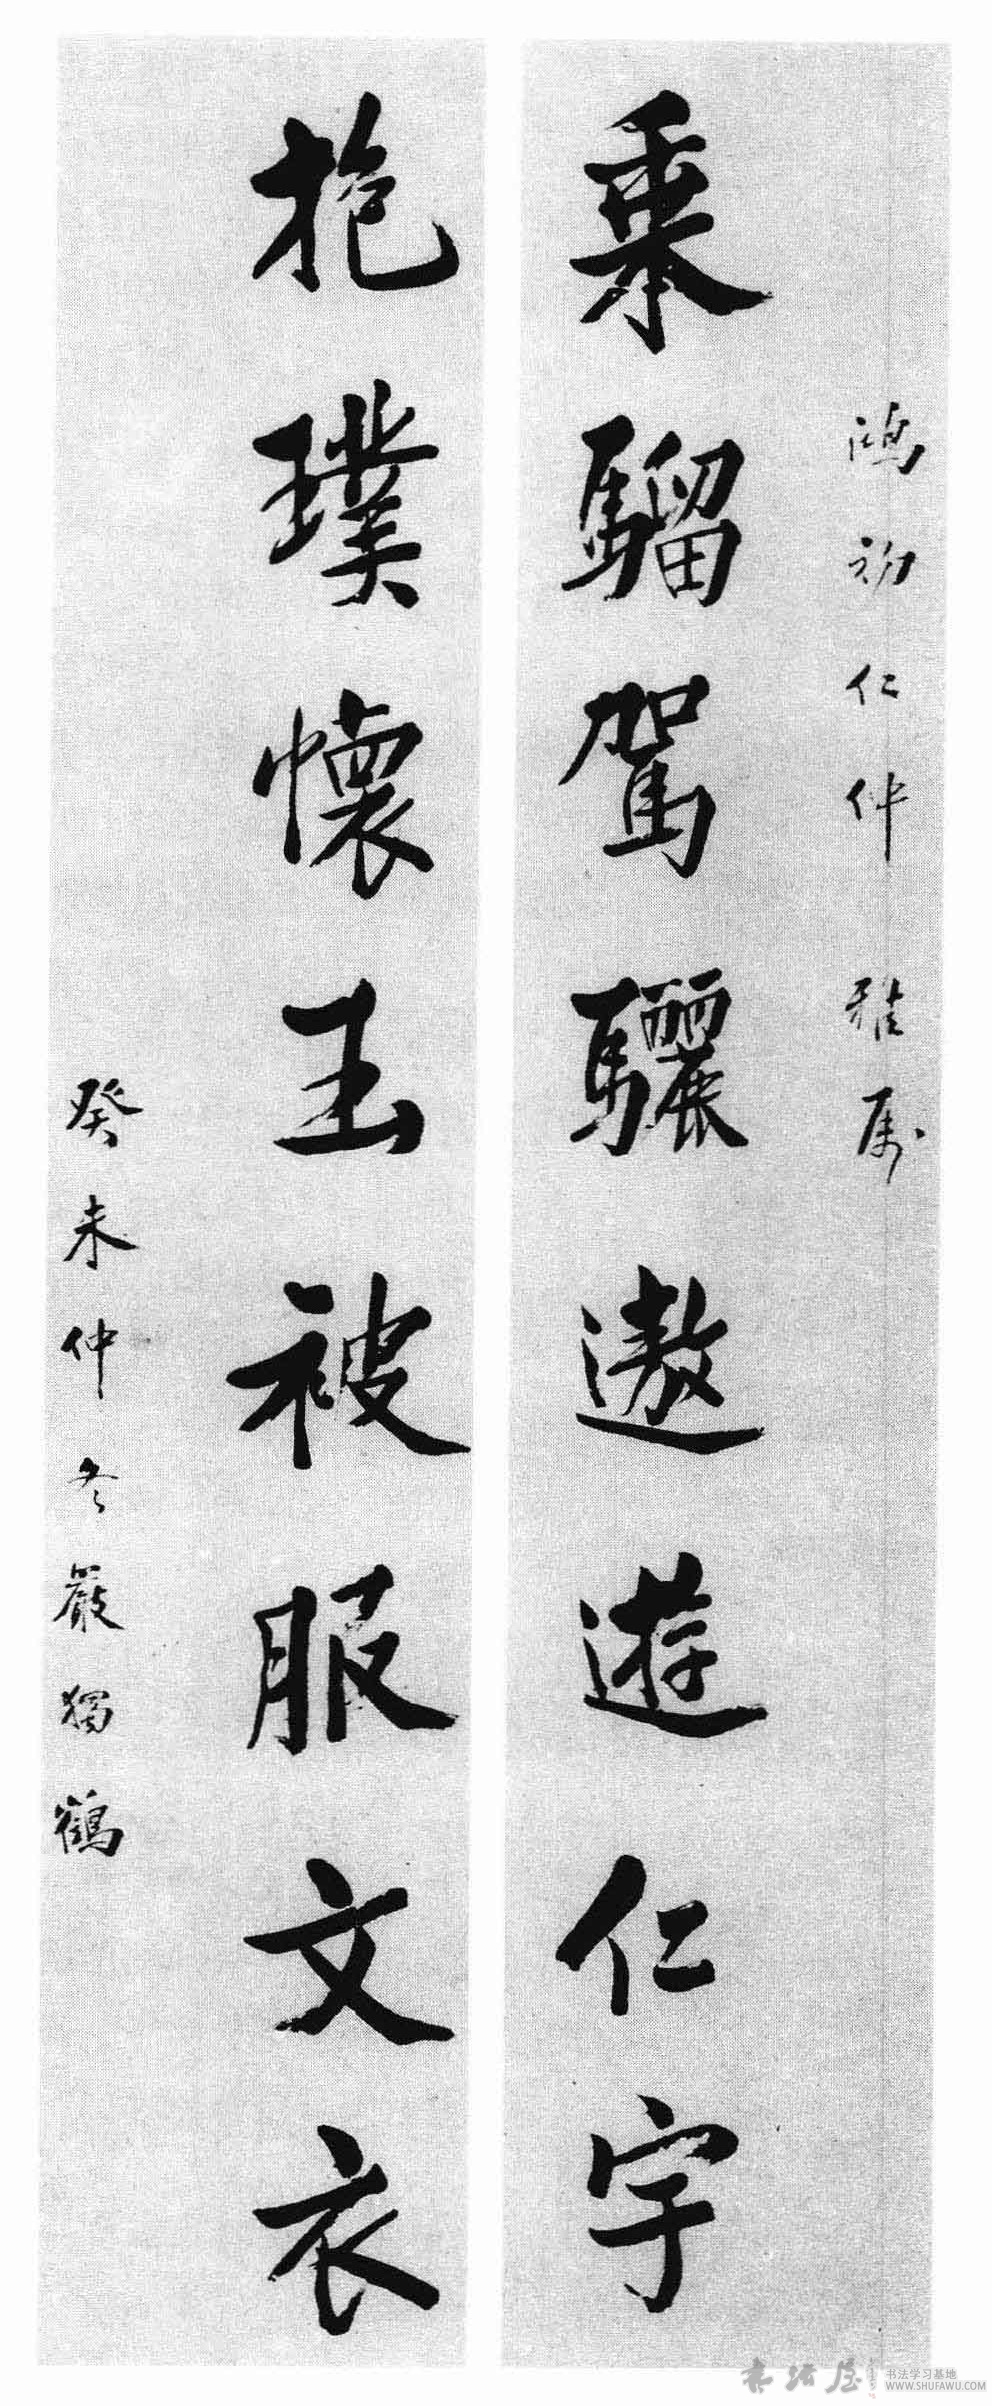 鴻初仁仲雅屬
乘騮駕驪遨遊仁宇
抱璞懷玉被服文衣
癸未仲冬嚴獨鶴
书法屋
书法学习基地
WWW.SHUFAWU.COM